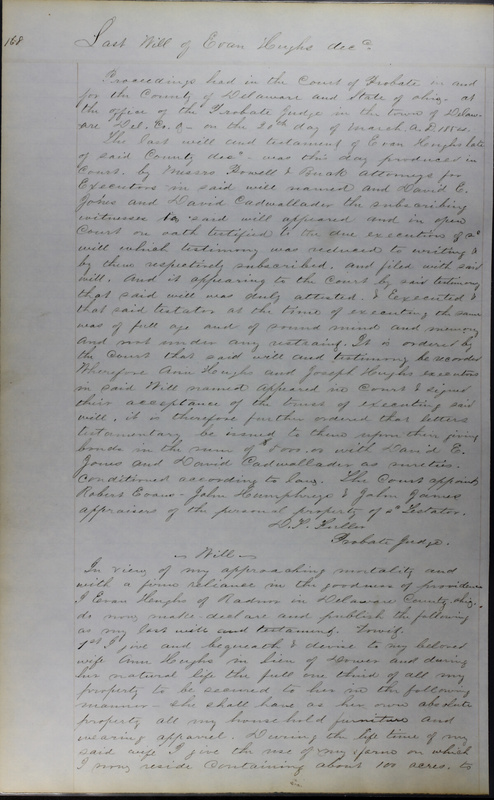 168
Last Will of Evan Hughs decd.
Proceedings had in the Court of Probate in and
for the County of Delaware and State of Ohio, at
the office of the Probate Judge in the town of Delaw-
are Del. Co. O- on the 20th day of March A.D. 1854.
The last will and testament of Evan Hughs late
of said County decd. was this day produced in
Court. by Messrs Powell & Buck attorneys for
Executors in said will named and David E.
Jones and David Cadwallader the subscribing
witnesses to said will appeared and in open
Court on oath testified to the due execution of sd
will which testimony was reduced to writing &
by them respectively subscribed. and filed with said
will. And it appearing to the Court by said testimony
that said will was duly attested. & Executed &
that said testator at the time of executing the same
was of full age and of sound mind and memory
and not under any restraing. It is ordered by
the Court that said will and testimony be recorded
Wherefore Ann Hughs and Joseph Hughs executors
in said Will named appeared in Court & signed
their acceptance of the trust of executing said
will. it is therefore further ordered that letters
testamentary be issued to them upon their giving
bonds in the sum of with David E.
Jones and David Cadwallader as sureties.
Conditioned according to law. The Court appoint
Robert Evans - John Humphreys & John James
appraisers of the personal property of sd Testator.
Probate Judge.
Will
In view of my approaching mortality and
with a firm reliance in the goodness of providence
I Evan Hughs of Radnor in Delaware County, Ohio.
do now make declare and publish the following
as my last will and testament. Towit.
1st I give and bequeath & devise to my beloved
wife Ann Hughs in lieu of Dower and during
her natural life the full one third of all my
property to be secured to her in the following
manner - she shall have as her own absolute
property all my household furniture and
wearing apparel. During the life time of my
said wife I give the use of my farm on which
I now reside containing about 100 acres. to